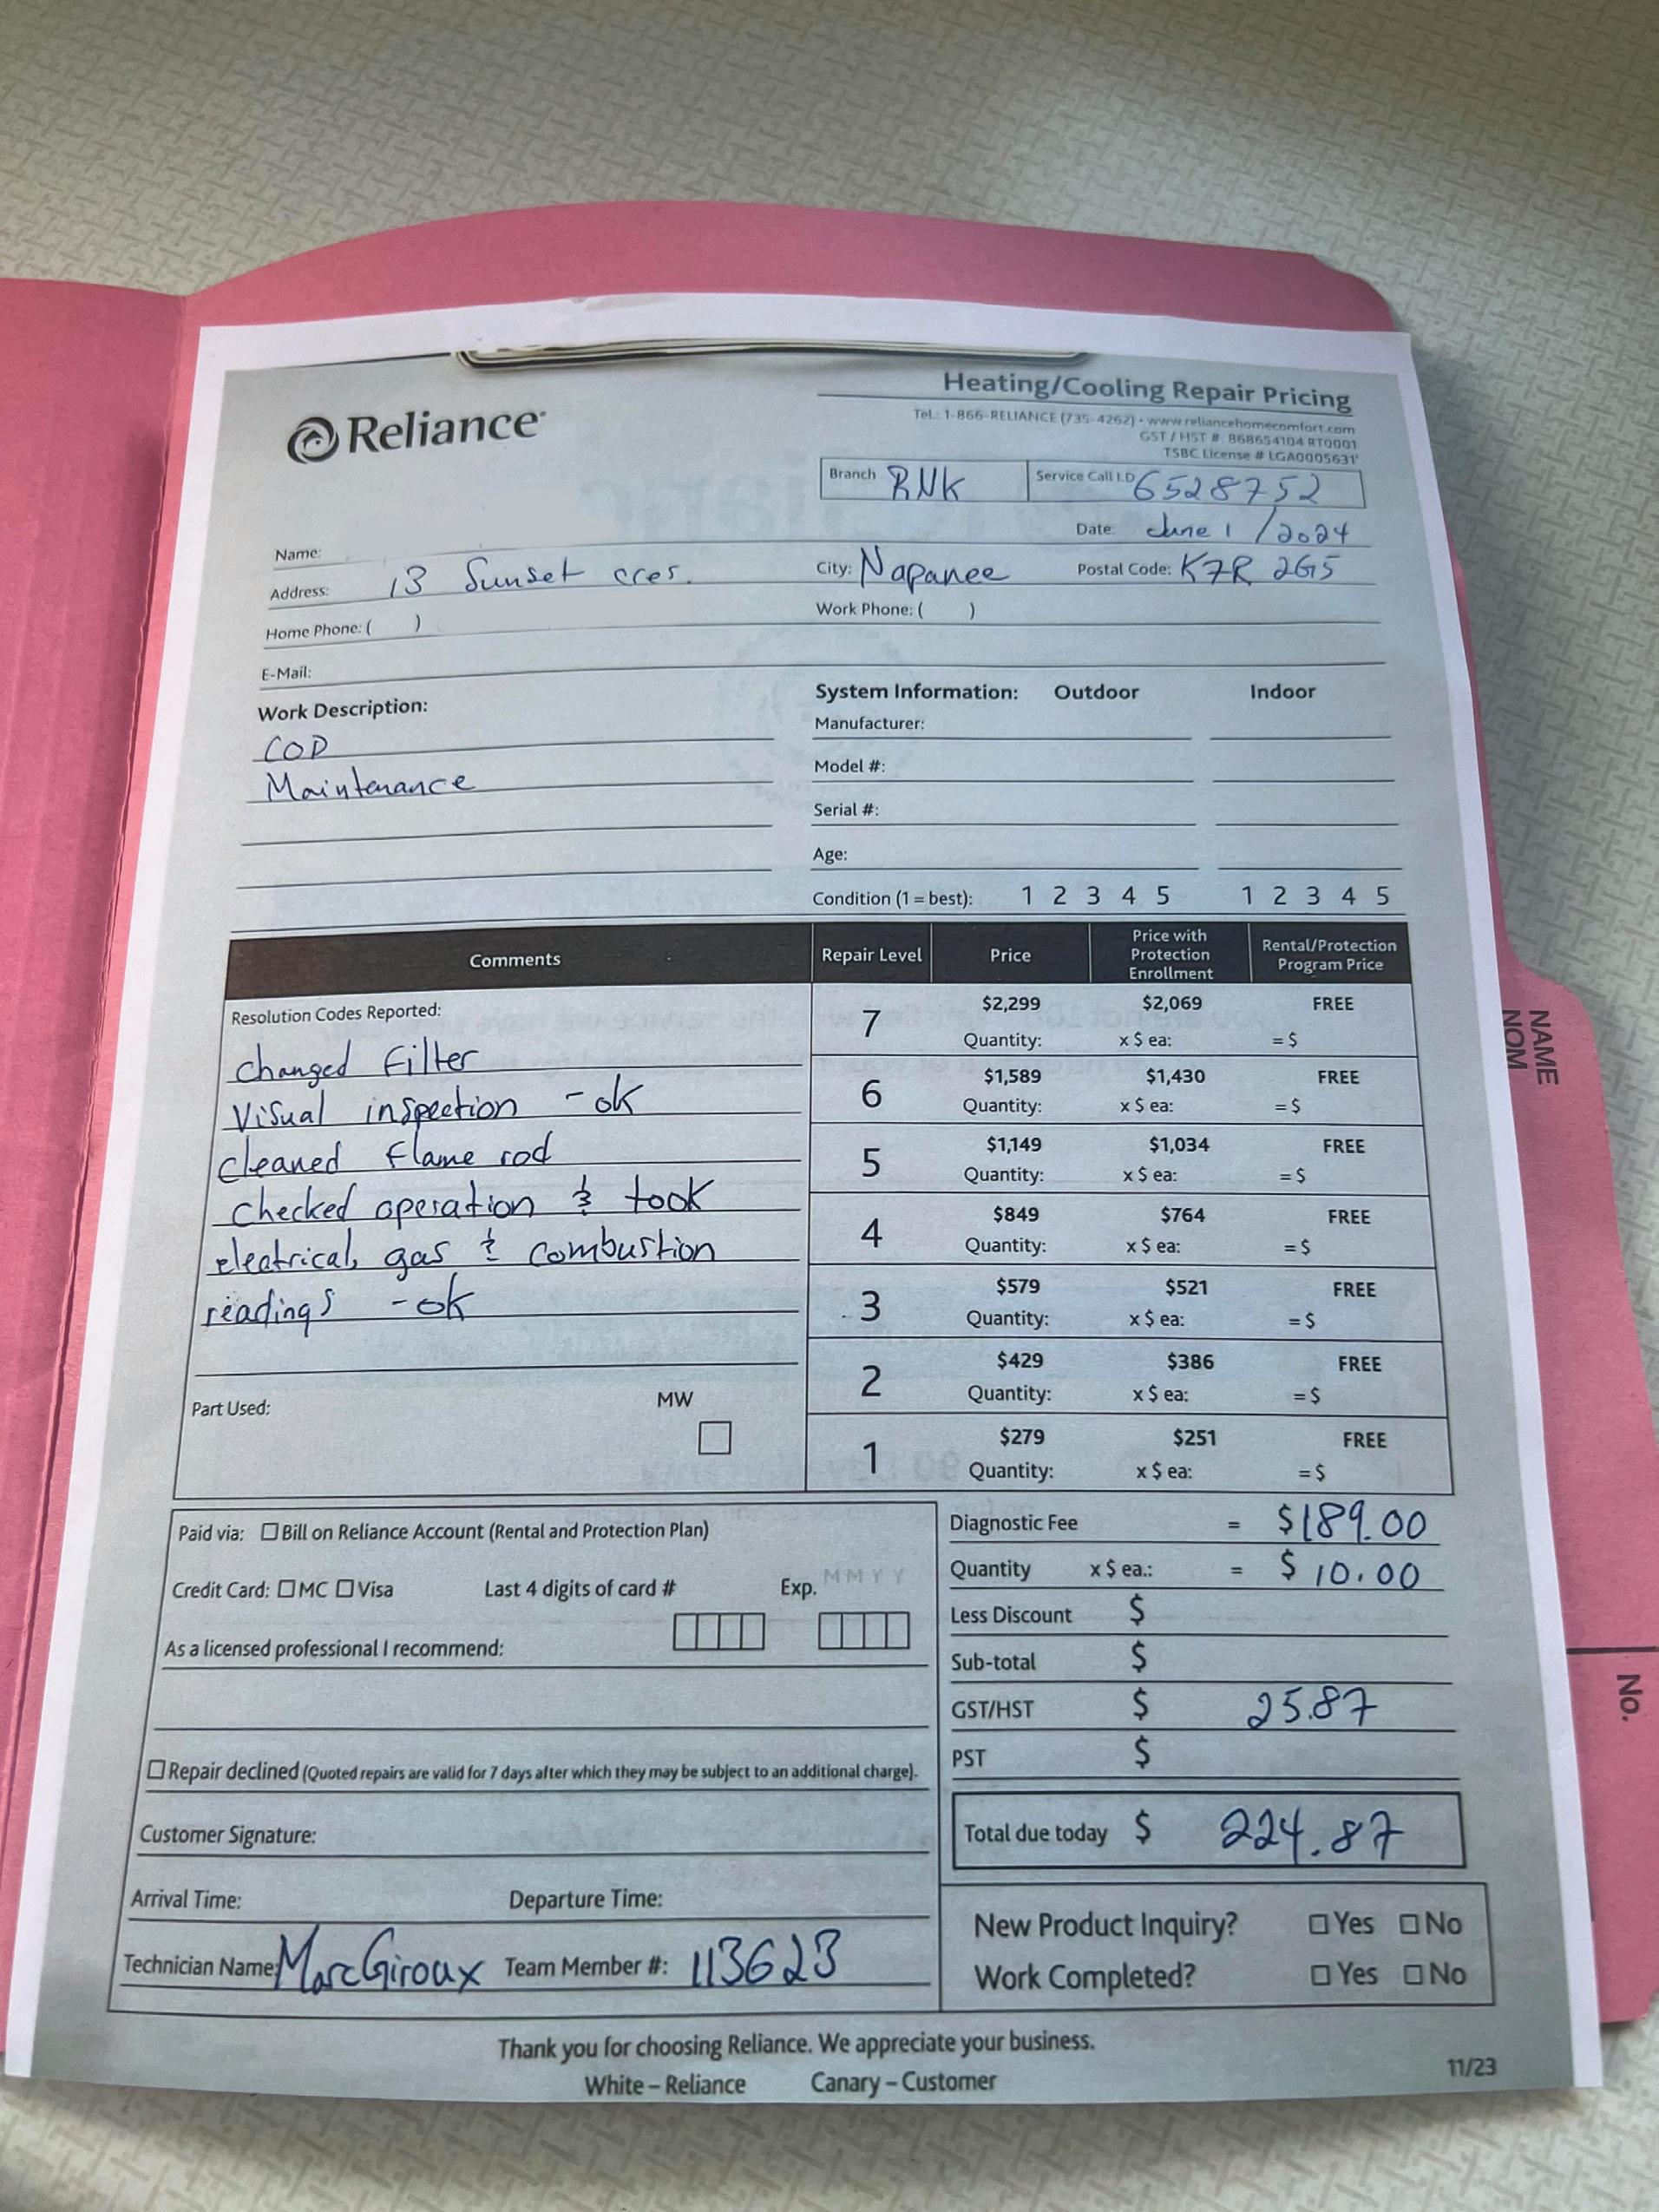 Reliance
Heating/Cooling Repair Pricing
Tel.: 1-866-RELIANCE (735-4262) • www.reliancehomecomfort.com
GST / HST #: 868654104 RT0001
TSBC License # LGA0005631
Branch RNK Service Call I.D 6528752
Date: June 1 / 2024
Name:
Address: 13 Sunset cres. City: Napanee Postal Code: K7R 2G5
Home Phone: ( ) Work Phone: ( )
E-Mail:
Work Description:
COD
Maintenance
System Information: Outdoor Indoor
Manufacturer:
Model #:
Serial #:
Age:
Condition (1 = best): 1 2 3 4 5 1 2 3 4 5
Comments
Resolution Codes Reported:
changed filter
Visual inspection - ok
cleaned flame rod
checked operation & took
electrical, gas & combustion
readings - ok
Part Used: MW
Repair Level Price Price with Protection Enrollment Rental/Protection Program Price
7 $2,299 $2,069 FREE
Quantity: x $ ea: = $
6 $1,589 $1,430 FREE
Quantity: x $ ea: = $
5 $1,149 $1,034 FREE
Quantity: x $ ea: = $
4 $849 $764 FREE
Quantity: x $ ea: = $
3 $579 $521 FREE
Quantity: x $ ea: = $
2 $429 $386 FREE
Quantity: x $ ea: = $
1 $279 $251 FREE
Quantity: x $ ea: = $
Paid via: Bill on Reliance Account (Rental and Protection Plan)
Credit Card: MC Visa Last 4 digits of card # Exp. MMYY
As a licensed professional I recommend:
Repair declined (Quoted repairs are valid for 7 days after which they may be subject to an additional charge).
Customer Signature:
Arrival Time: Departure Time:
Technician Name: Marc Giroux Team Member #: 113623
Diagnostic Fee = $189.00
Quantity x $ ea.: = $ 10.00
Less Discount $
Sub-total $
GST/HST $ 25.87
PST $
Total due today $ 224.87
New Product Inquiry? Yes No
Work Completed? Yes No
Thank you for choosing Reliance. We appreciate your business.
White – Reliance Canary – Customer
11/23
NAME
NOM
No.